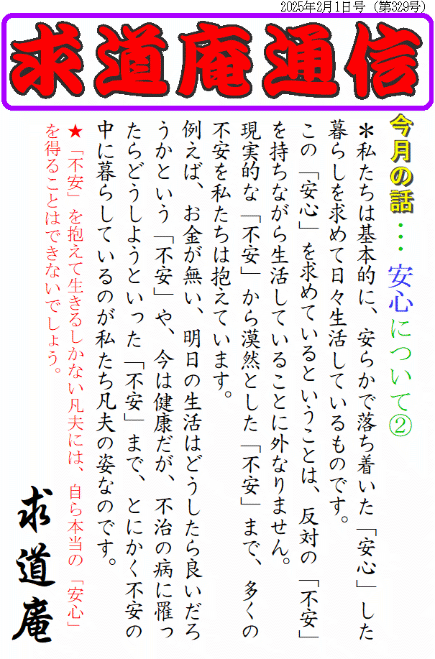 2025年2月1日号（第329号）
求道庵通信
今月の話…安心について②
＊私たちは基本的に、安らかで落ち着いた「安心」した
暮らしを求めて日々生活しているものです。
この「安心」を求めているということは、反対の「不安」
を持ちながら生活していることに外なりません。
現実的な「不安」から漠然とした「不安」まで、多くの
不安を私たちは抱えています。
例えば、お金が無い、明日の生活はどうしたら良いだろ
うかという「不安」や、今は健康だが、不治の病に罹っ
たらどうしようといった「不安」まで、とにかく不安の
中に暮らしているのが私たち凡夫の姿なのです。
★「不安」を抱えて生きるしかない凡夫には、自ら本当の「安心」
を得ることはできないでしょう。
求道庵